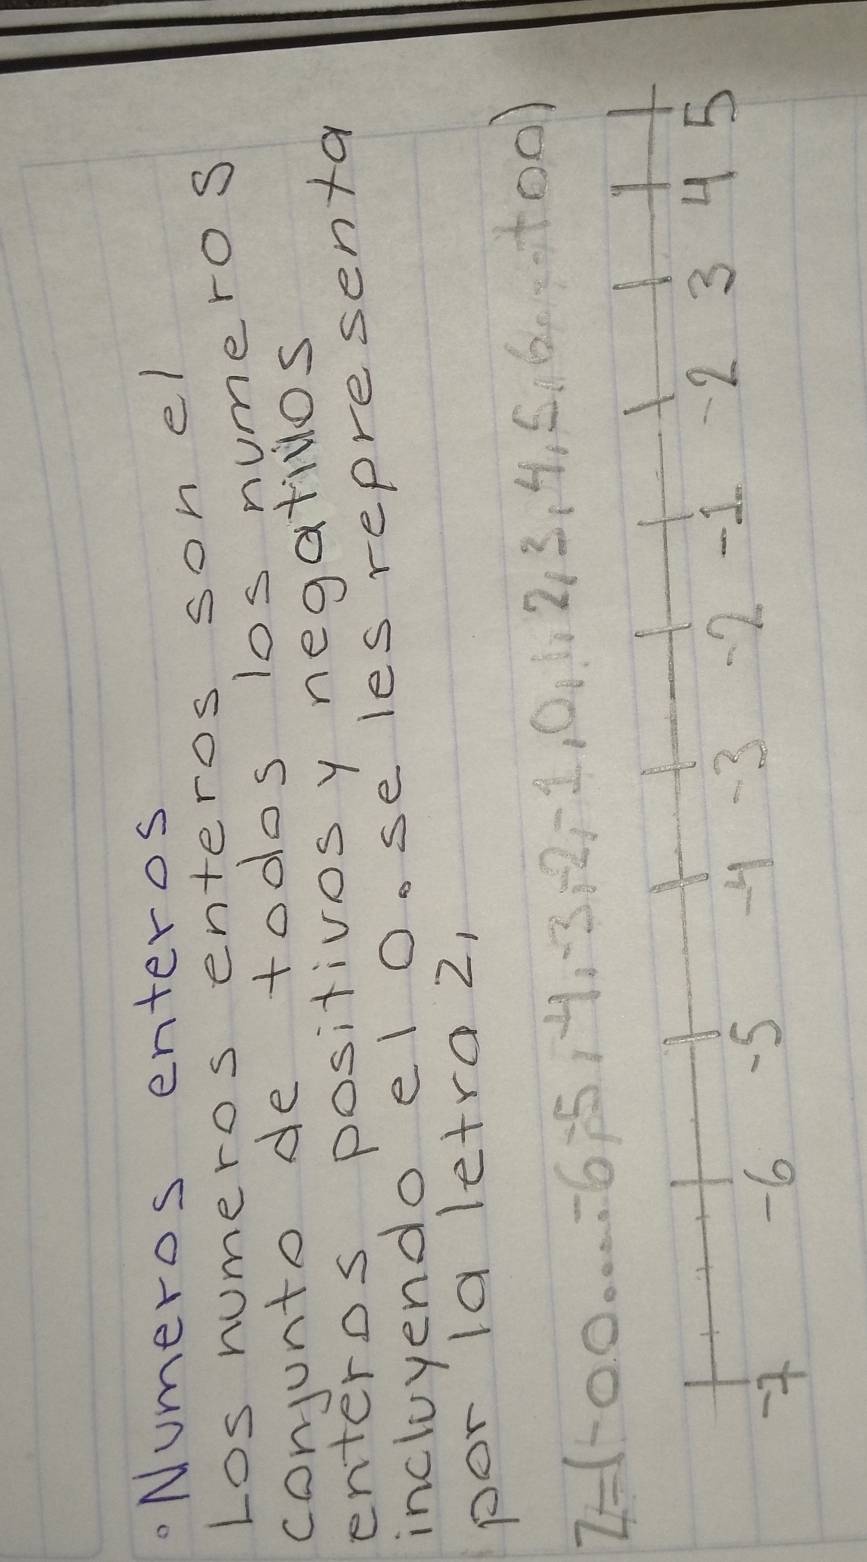 • Numeros enteros
Los numeros enteros son el
conjunto de todos los numeros
enteros positivos y negativos
incluyendo el 0. se les representa
por la letra z,
Z=(-00.....-6,-5,-4,-3,-2,-1,0,1,2,3,4,5,6....+00)
-7 -6 -5 -4 -3 -2 -1 -2 3 4 5